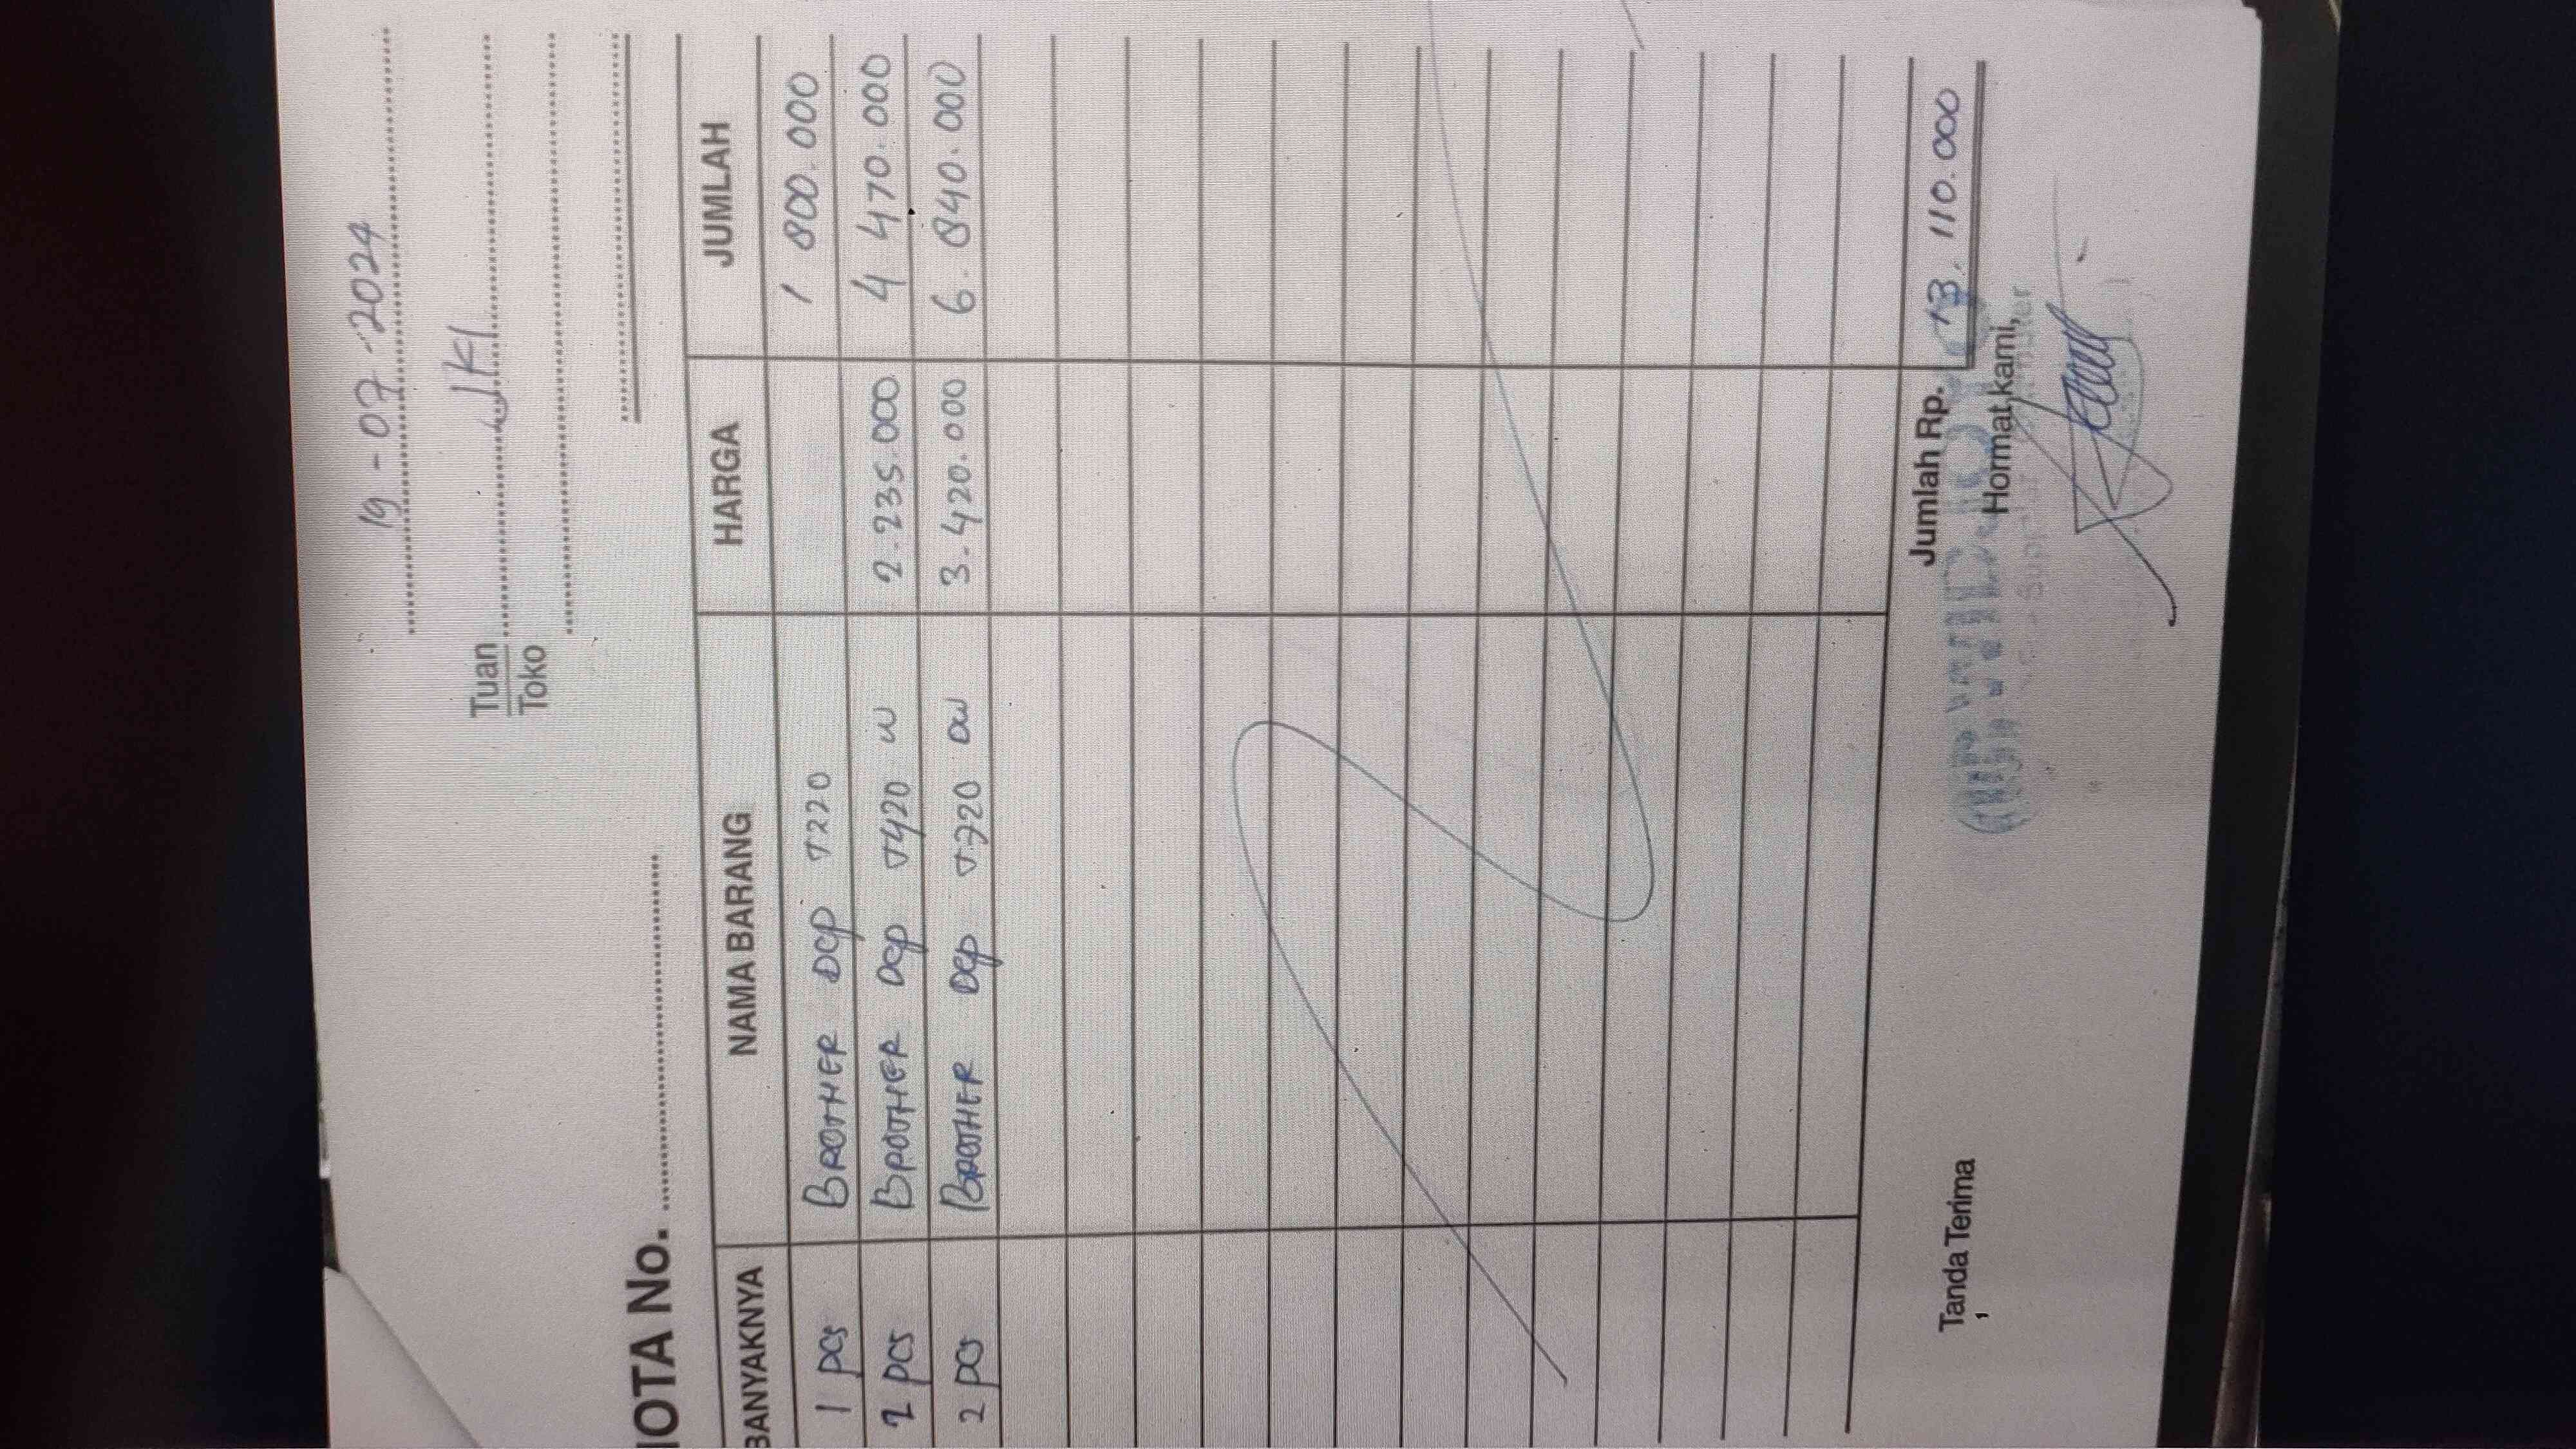 19-07-2024
Tuan
Toko
NOTA No.
BANYAKNYA NAMA BARANG HARGA JUMLAH
1 pcs BROTHER DCP T220 1 800.000
2 pcs BROTHER DCP T420 W 2.235.000 4 470.000
2 pcs BROTHER DCP T720 DW 3.420.000 6.840.000
Jumlah Rp. 13.110.000
Tanda Terima Hormat kami,